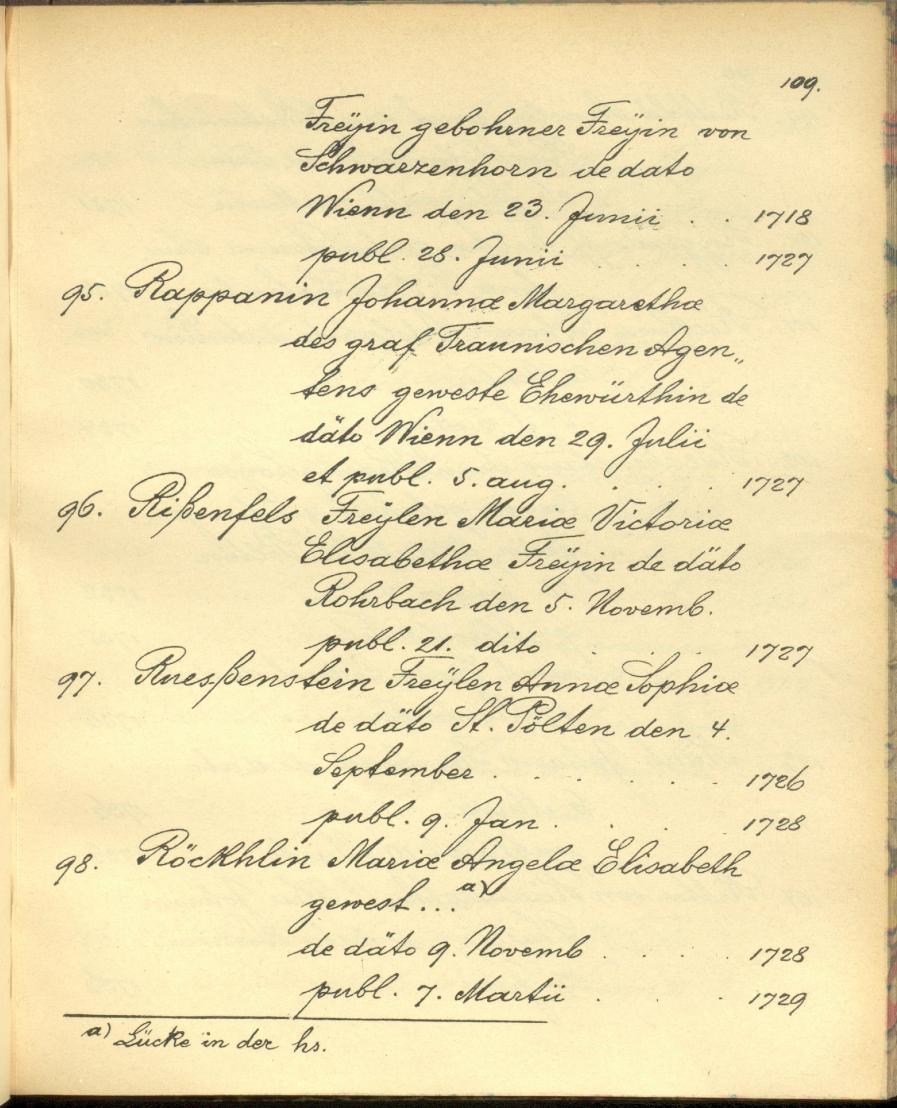 109.
Freÿin gebohrner Freÿin von
Schwarzenhorn de dato
Wienn den 23. Junii . . 1718
publ. 28. Junii . . . . 1727
95. Rappanin Johannæ Margarethæ
des graf Traunischen Agen„
tens geweste Ehewürthin de
däto Wienn den 29. Julii
et publ. 5. aug. . . . . 1727
96. Rißenfels Freÿlen Mariæ Victoriæ
Elisabethæ Freÿin de däto
Rohrbach den 5. Novemb.
publ. 21. dito . . . . 1727
97. Ruesßenstein Freÿlen Annæ Sophiæ
de däto St. Pölten den 4.
September . . . . . . 1726
publ. 9. Jan . . . . 1728
98. Röckhlin Mariæ Angelæ Elisabeth
gewest ... a)
de däto 9. Novemb . . . . 1728
publ. 7. Martii . . . 1729
a) Lücke in der hs.